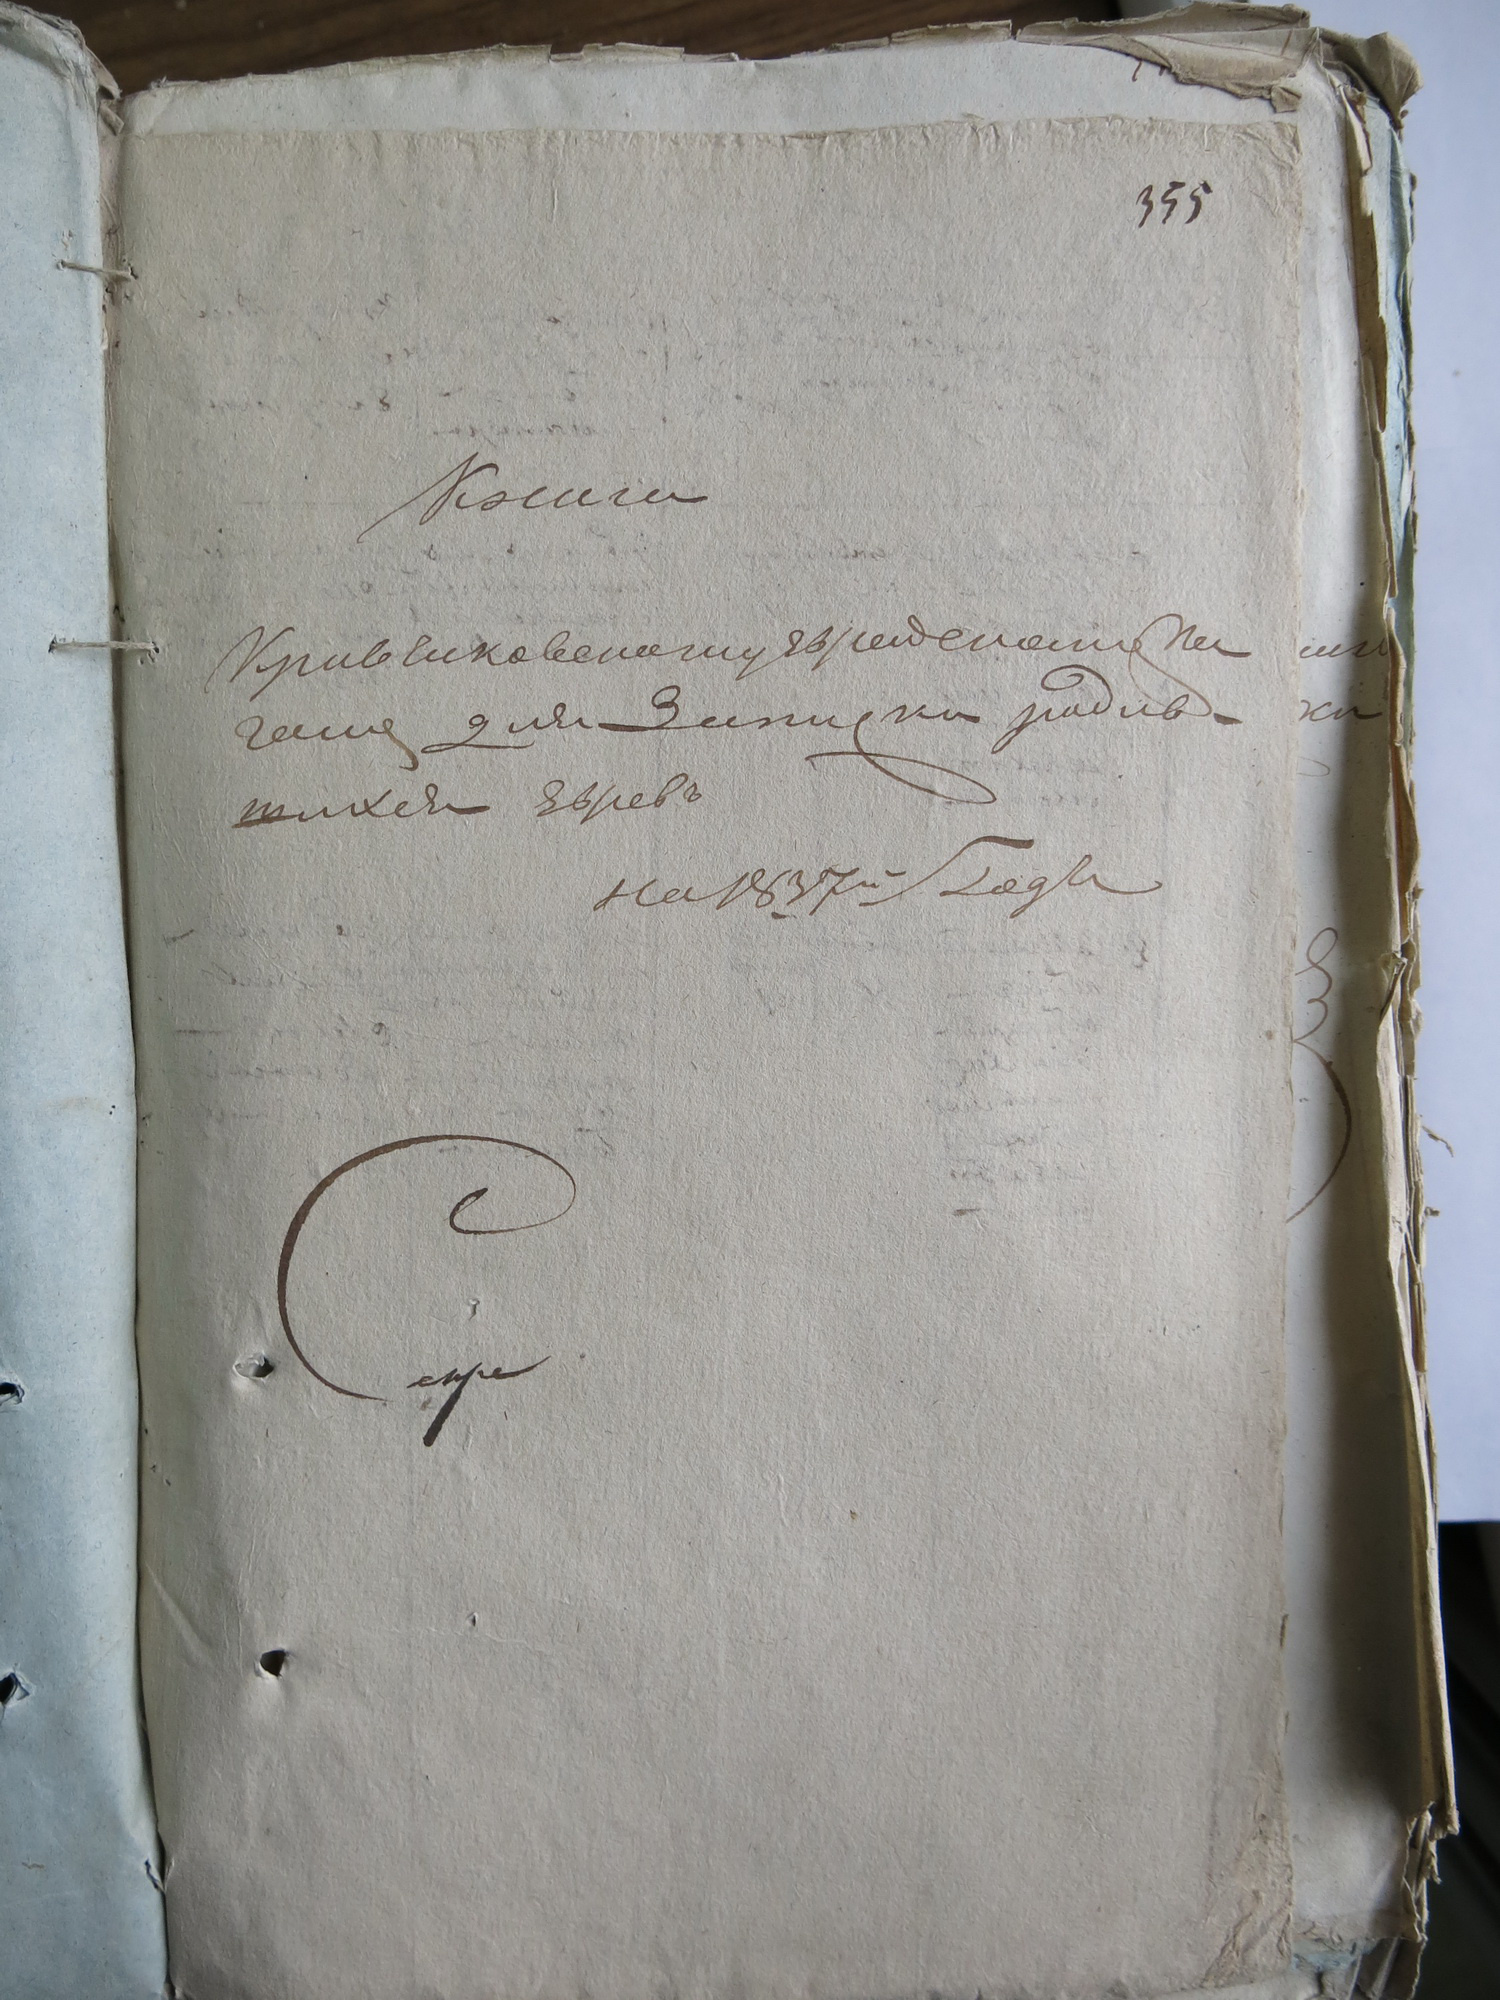 355
Книга
Кривчиковскому эврейскому Ка
галу для Записки родив-
шихся эврев
на 1837й Годъ
Скре